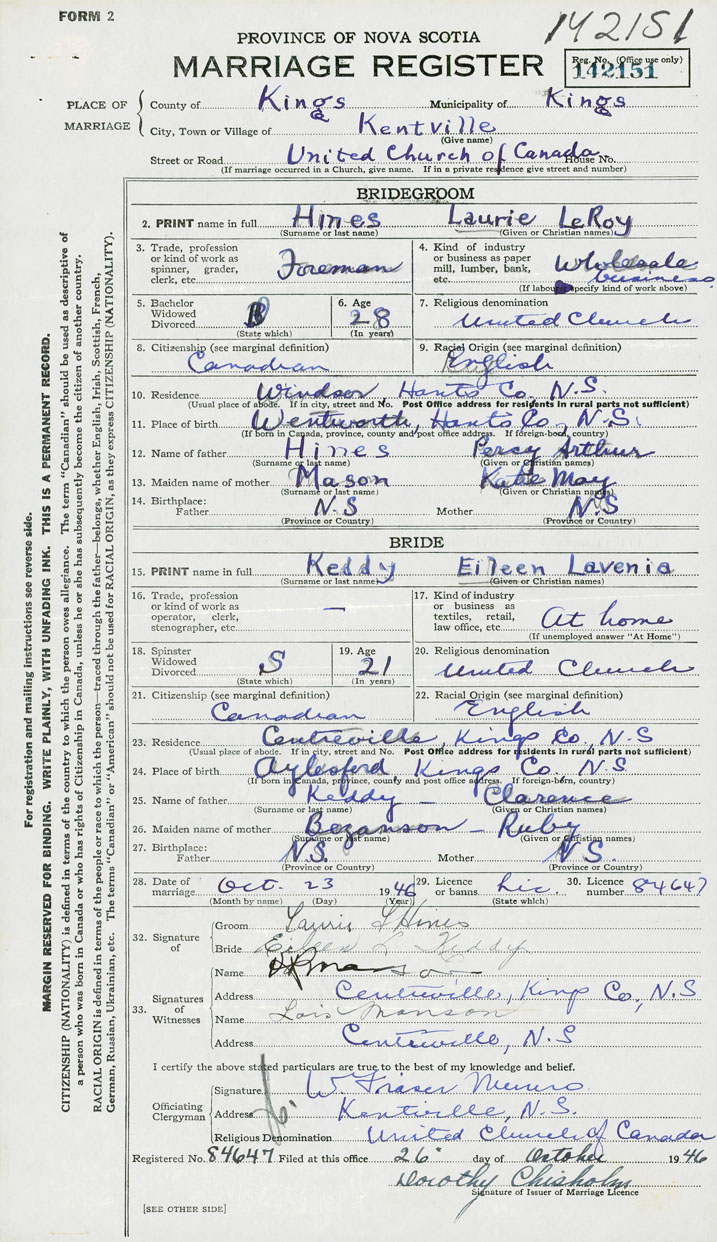 FORM 2
142151
PROVINCE OF NOVA SCOTIA
MARRIAGE REGISTER
Reg. No. (Office use only)
142151
PLACE OF MARRIAGE
County of Kings Municipality of Kings
City, Town or Village of Kentville
(Give name)
Street or Road United Church of Canada House No.
(If marriage occurred in a Church, give name. If in a private residence give street and number)
BRIDEGROOM
2. PRINT name in full Hines Laurie LeRoy
(Surname or last name) (Given or Christian names)
3. Trade, profession or kind of work as spinner, grader, clerk, etc. Foreman
4. Kind of industry or business as paper mill, lumber, bank, etc. Wholesale business
(If labourer specify kind of work above)
5. Bachelor Widowed Divorced B
(State which)
6. Age 28
(In years)
7. Religious denomination
United Church
8. Citizenship (see marginal definition)
Canadian
9. Racial Origin (see marginal definition)
English
10. Residence Windsor, Hants Co., N.S.
(Usual place of abode. If in city, street and No. Post Office address for residents in rural parts not sufficient)
11. Place of birth Wentworth, Hants Co., N.S.
(If born in Canada, province, county and post office address. If foreign-born, country)
12. Name of father Hines Percy Arthur
(Surname or last name) (Given or Christian names)
13. Maiden name of mother Mason Katie May
(Surname or last name) (Given or Christian names)
14. Birthplace: Father N.S Mother N.S
(Province or Country) (Province or Country)
BRIDE
15. PRINT name in full Keddy Eileen Lavenia
(Surname or last name) (Given or Christian names)
16. Trade, profession or kind of work as operator, clerk, stenographer, etc. —
17. Kind of industry or business as textiles, retail, law office, etc. At home
(If unemployed answer "At Home")
18. Spinster Widowed Divorced S
(State which)
19. Age 21
(In years)
20. Religious denomination
United Church
21. Citizenship (see marginal definition)
Canadian
22. Racial Origin (see marginal definition)
English
23. Residence Centreville, Kings Co., N.S
(Usual place of abode. If in city, street and No. Post Office address for residents in rural parts not sufficient)
24. Place of birth Aylesford Kings Co. N.S.
(If born in Canada, province, county and post office address. If foreign-born, country)
25. Name of father Keddy — Clarence
(Surname or last name) (Given or Christian names)
26. Maiden name of mother Bezanson — Ruby
(Surname or last name) (Given or Christian names)
27. Birthplace: Father N.S. Mother N.S.
(Province or Country) (Province or Country)
28. Date of marriage Oct. 23 1946
(Month by name) (Day) (Year)
29. Licence or banns Lic.
(State which)
30. Licence number 84647
32. Signature of
Groom Laurie L Hines
Bride Eileen L. Keddy
33. Signatures of Witnesses
Name
Address Centreville, Kings Co, N.S
Name Lois Manson
Address Centreville, N.S
I certify the above stated particulars are true to the best of my knowledge and belief.
Officiating Clergyman
Signature W. Fraser Munro
Address Kentville, N.S.
Religious Denomination United Church of Canada
Registered No. 84647 Filed at this office 26 day of October 1946
Dorothy Chisholm
Signature of Issuer of Marriage Licence
[SEE OTHER SIDE]
For registration and mailing instructions see reverse side.
MARGIN RESERVED FOR BINDING. WRITE PLAINLY, WITH UNFADING INK. THIS IS A PERMANENT RECORD.
CITIZENSHIP (NATIONALITY) is defined in terms of the country to which the person owes allegiance. The term "Canadian" should be used as descriptive of
a person who was born in Canada or who has rights of Citizenship in Canada, unless he or she has subsequently become the citizen of another country.
RACIAL ORIGIN is defined in terms of the people or race to which the person—traced through the father—belongs, whether English, Irish, Scottish, French,
German, Russian, Ukrainian, etc. The terms "Canadian" or "American" should not be used for RACIAL ORIGIN, as they express CITIZENSHIP (NATIONALITY).